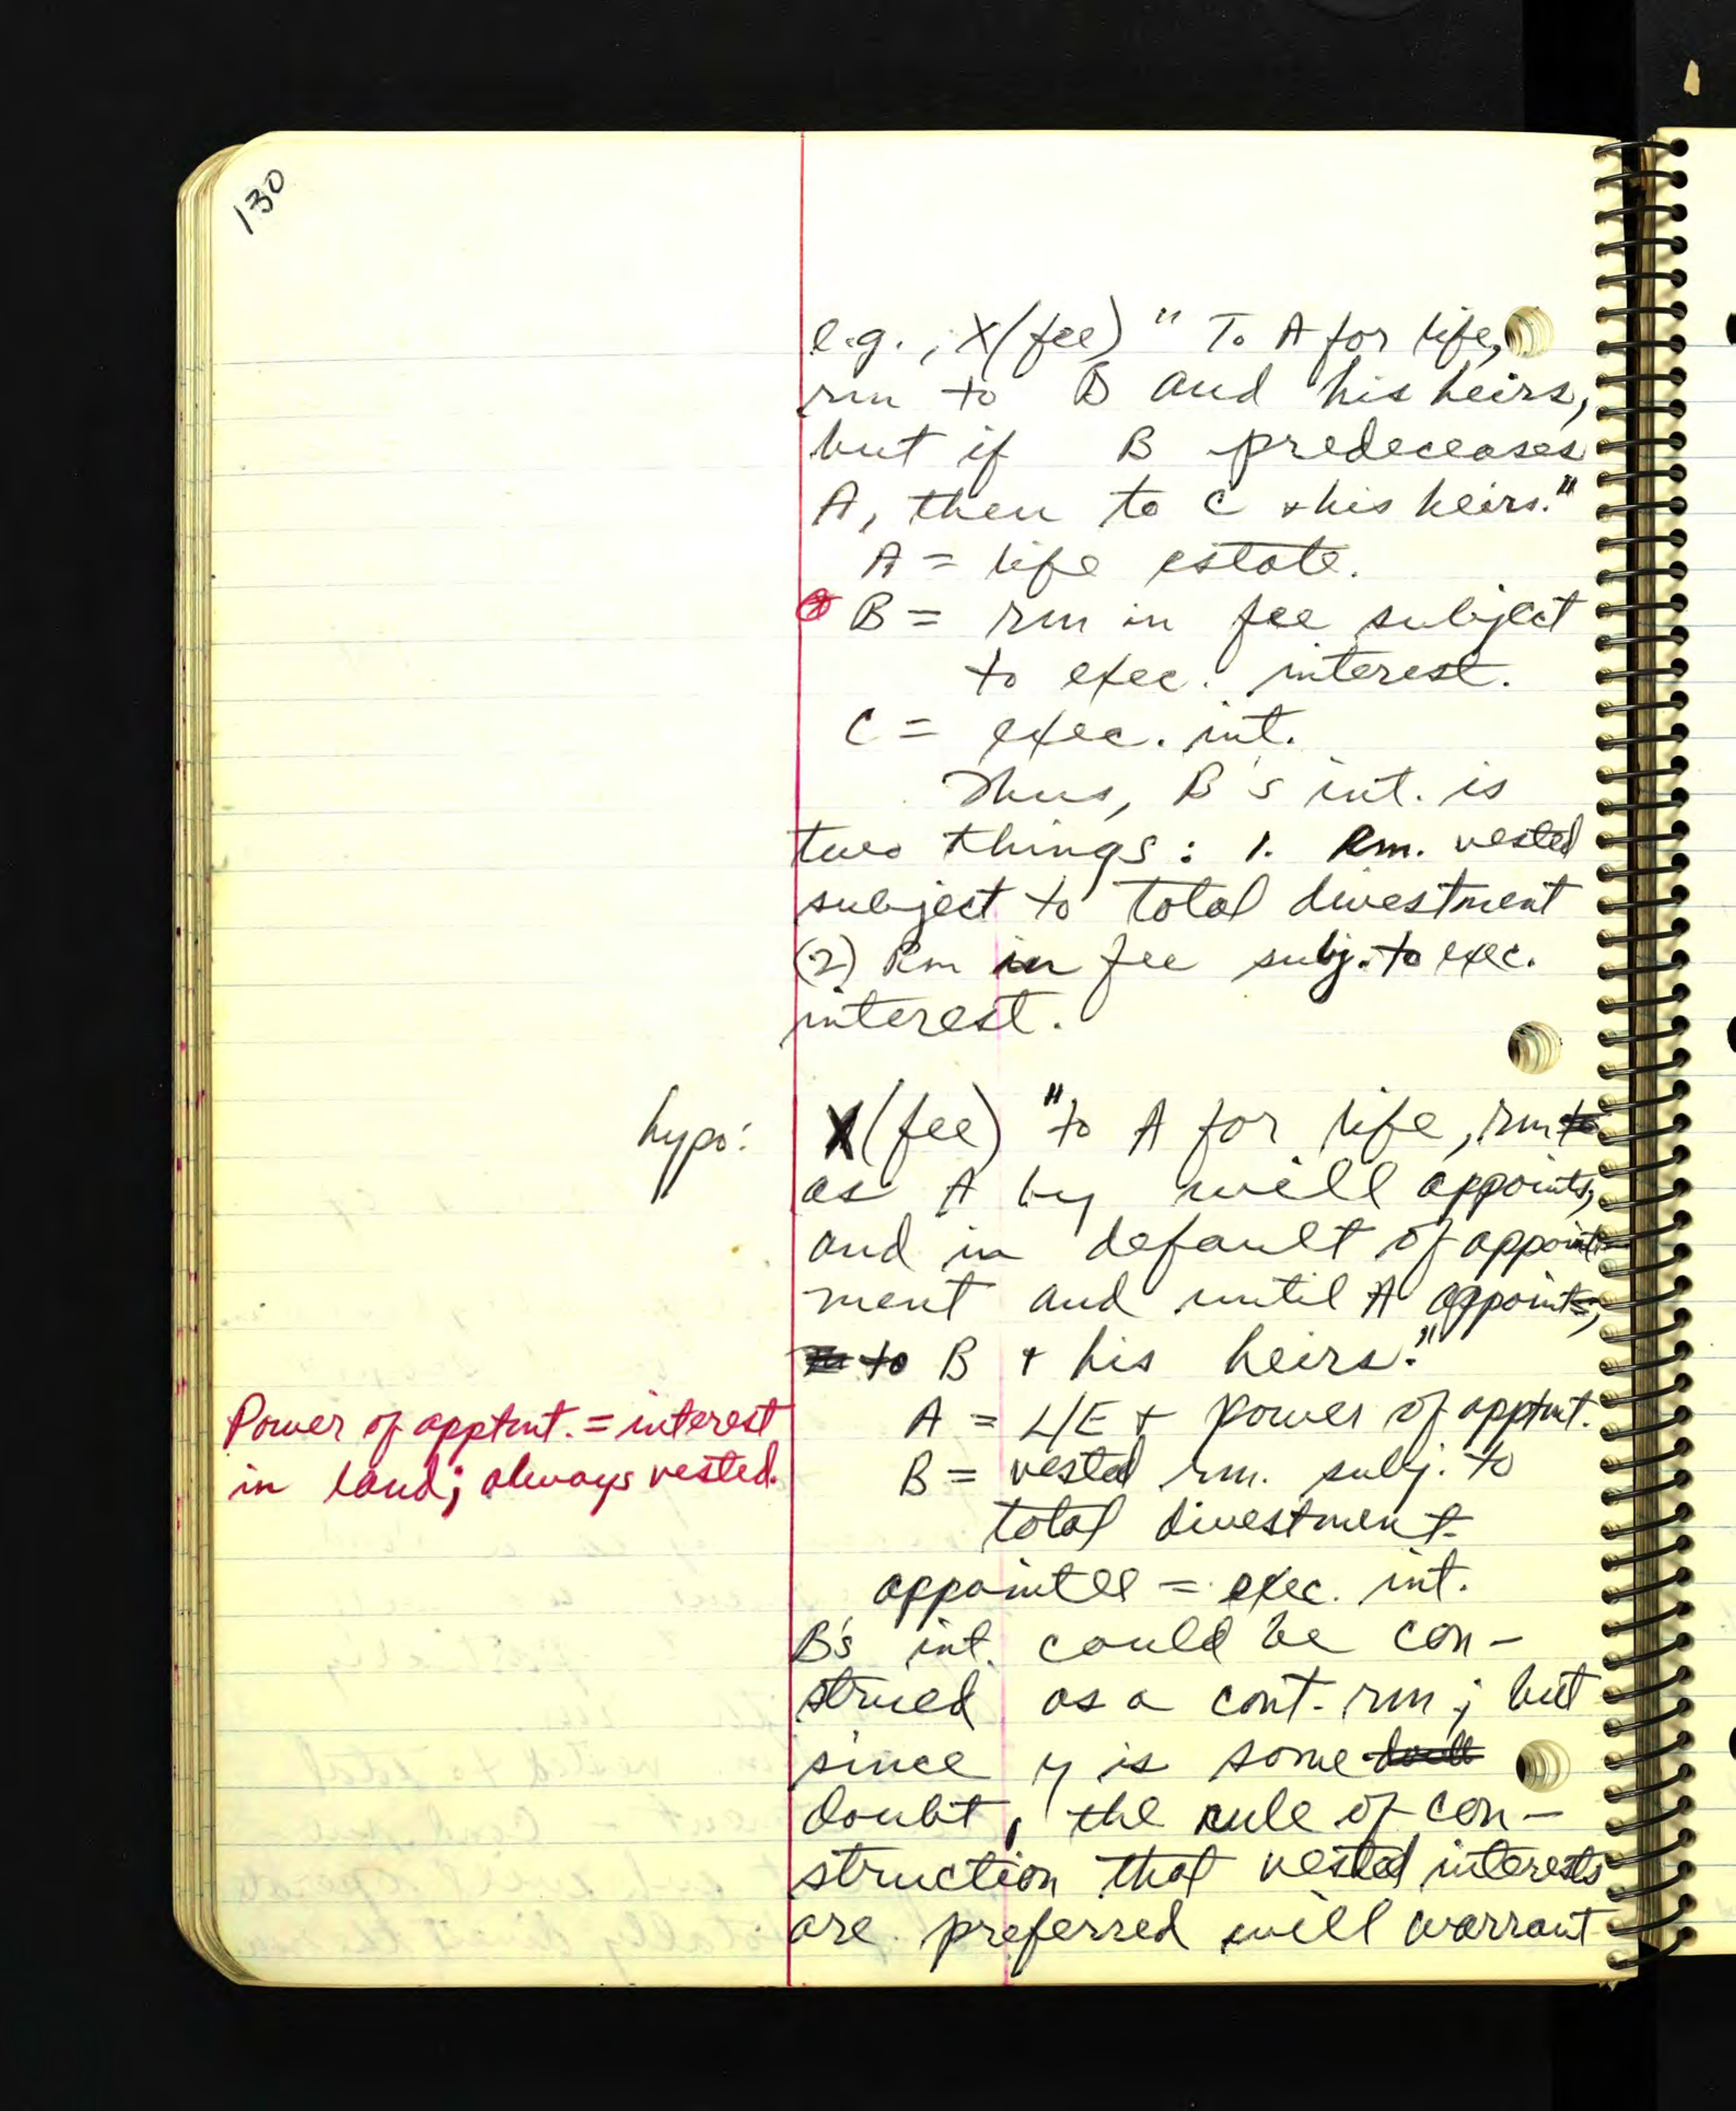 130
e.g., X(fee) "To A for life,
rm to B and his heirs,
but if B predeceases
A, then to C + his heirs."
A = life estate.
B = rm in fee subject
to exec. interest.
C = exec. int.
Thus, B's int. is
two things: 1. Rm. vested
subject to total divestment
(2) Rm in fee subj. to exec.
interest.
hypo: X(fee) "to A for life, rm to
as A by will appoints,
and in default of appoint-
ment and until A appoints,
to B + his heirs."
A = L/E + power of apptmt.
Power of apptmt. = interest
in land; always vested.
B = vested rm. subj. to
total divestment
appointee = exec. int.
B's int. could be con-
strued as a cont. rm; but
since y is some
doubt, the rule of con-
struction that vested interests
are preferred will warrant